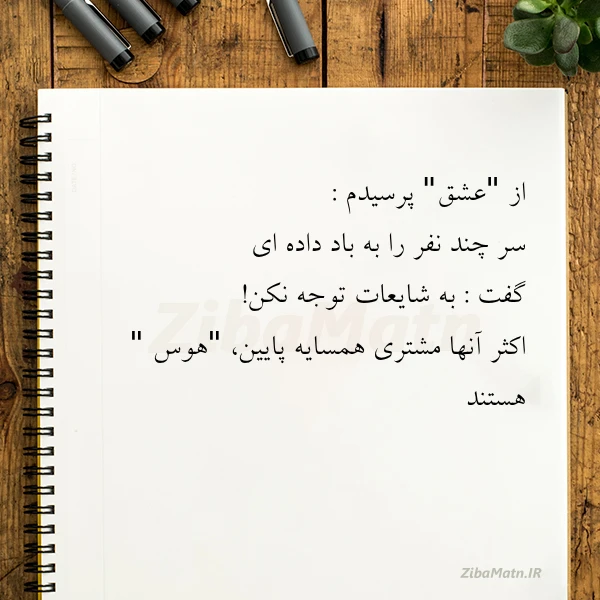 از "عشق" پرسیدم :
سر چند نفر را به باد داده ای
گفت : به شایعات توجه نکن!
اکثر آنها مشتری همسایه پایین، "هوس "
هستند
ZibaMatn
ZibaMatn.IR